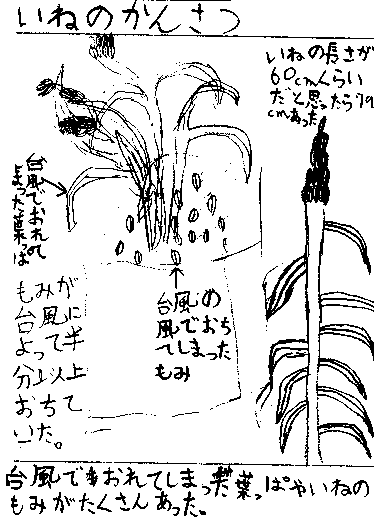 いねのかんさつ
いねの長さが
60cmくらい
だと思ったら79
cmあった
台風でおれて
しまった葉っぱ
もみが
台風に
よって半
分以上
おちて
いた。
台風の
風でおち
てしまった
もみ
台風でおれてしまった葉っぱやいねの
もみがたくさんあった。